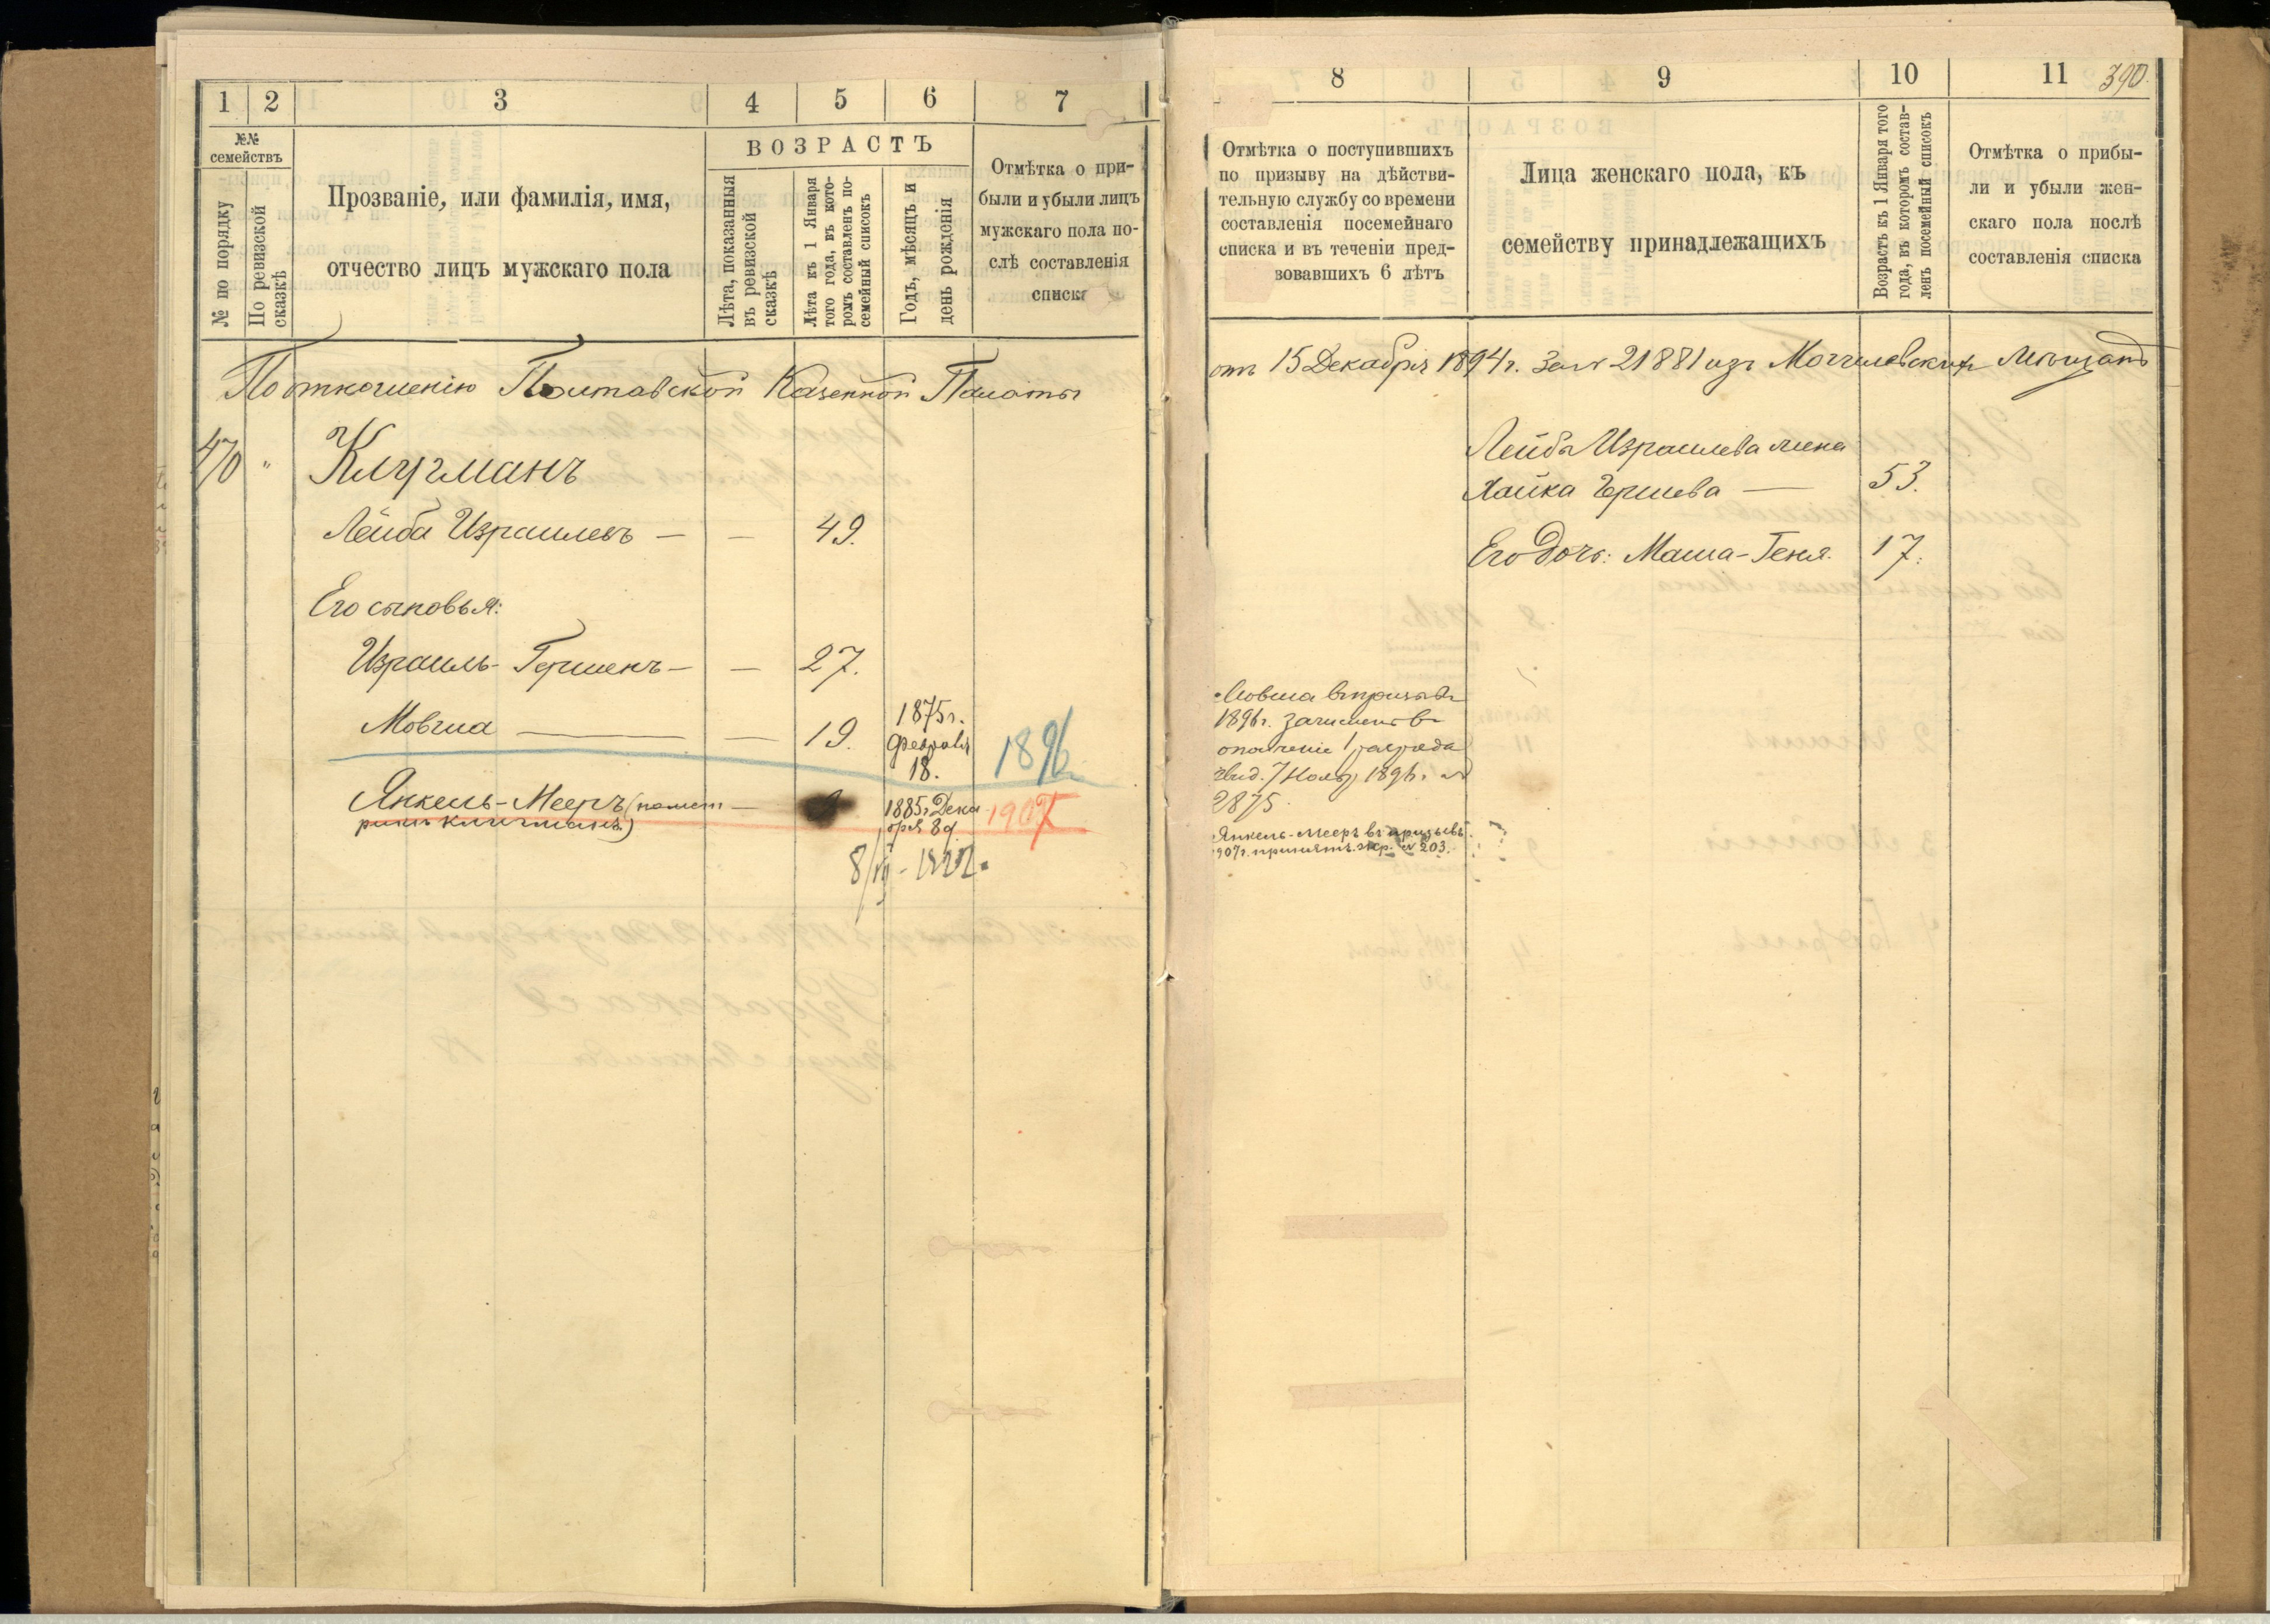 1 2 3 4 5 6 7
№№ семействъ
№ по порядку
По ревизской сказкѣ
Прозваніе, или фамилія, имя,
отчество лицъ мужскаго пола
ВОЗРАСТЪ
Лѣта, показанныя
въ ревизской
сказкѣ
Лѣта къ 1 Января
того года, въ кото-
ромъ составленъ по-
семейный списокъ
Годъ, мѣсяцъ и
день рожденія
Отмѣтка о при-
были и убыли лицъ
мужскаго пола по-
слѣ составленія
списка
По отношенію Полтавской Казенной Палаты
470 "
Лейба Израилевъ — — 49.
Его сыновья:
Израиль-Гершенъ — — 27.
Мовша — — 19.
1875г.
Февраля
18.
1896
Янкель-Мееръ (по мет
рикѣ Клигманъ)
1885г. Дека
бря 8д
1907
8 9 10 11 390.
Отмѣтка о поступившихъ
по призыву на дѣйстви-
тельную службу со времени
составленія посемейнаго
списка и въ теченіи пред-
зовавшихъ 6 лѣтъ
Лица женскаго пола, къ
семейству принадлежащихъ
Возрастъ къ 1 Января того
года, въ которомъ состав-
ленъ посемейный списокъ
Отмѣтка о прибы-
ли и убыли жен-
скаго пола послѣ
составленія списка
отъ 15 Декабря 1894г. за № 21881 изъ Могилевскихъ Мѣщанъ
Лейбы Израилева жена
Хайка Гершева — 53.
Его дочь: Маша-Геня. 17.
Мовша въ призывъ
1896г. зачисленъ в
ополченіе 1 разряда
свид. 7 Нояб 1896г. №
2875.
Янкель-Мееръ въ призывъ
1907г. принятъ. жер. № 203.